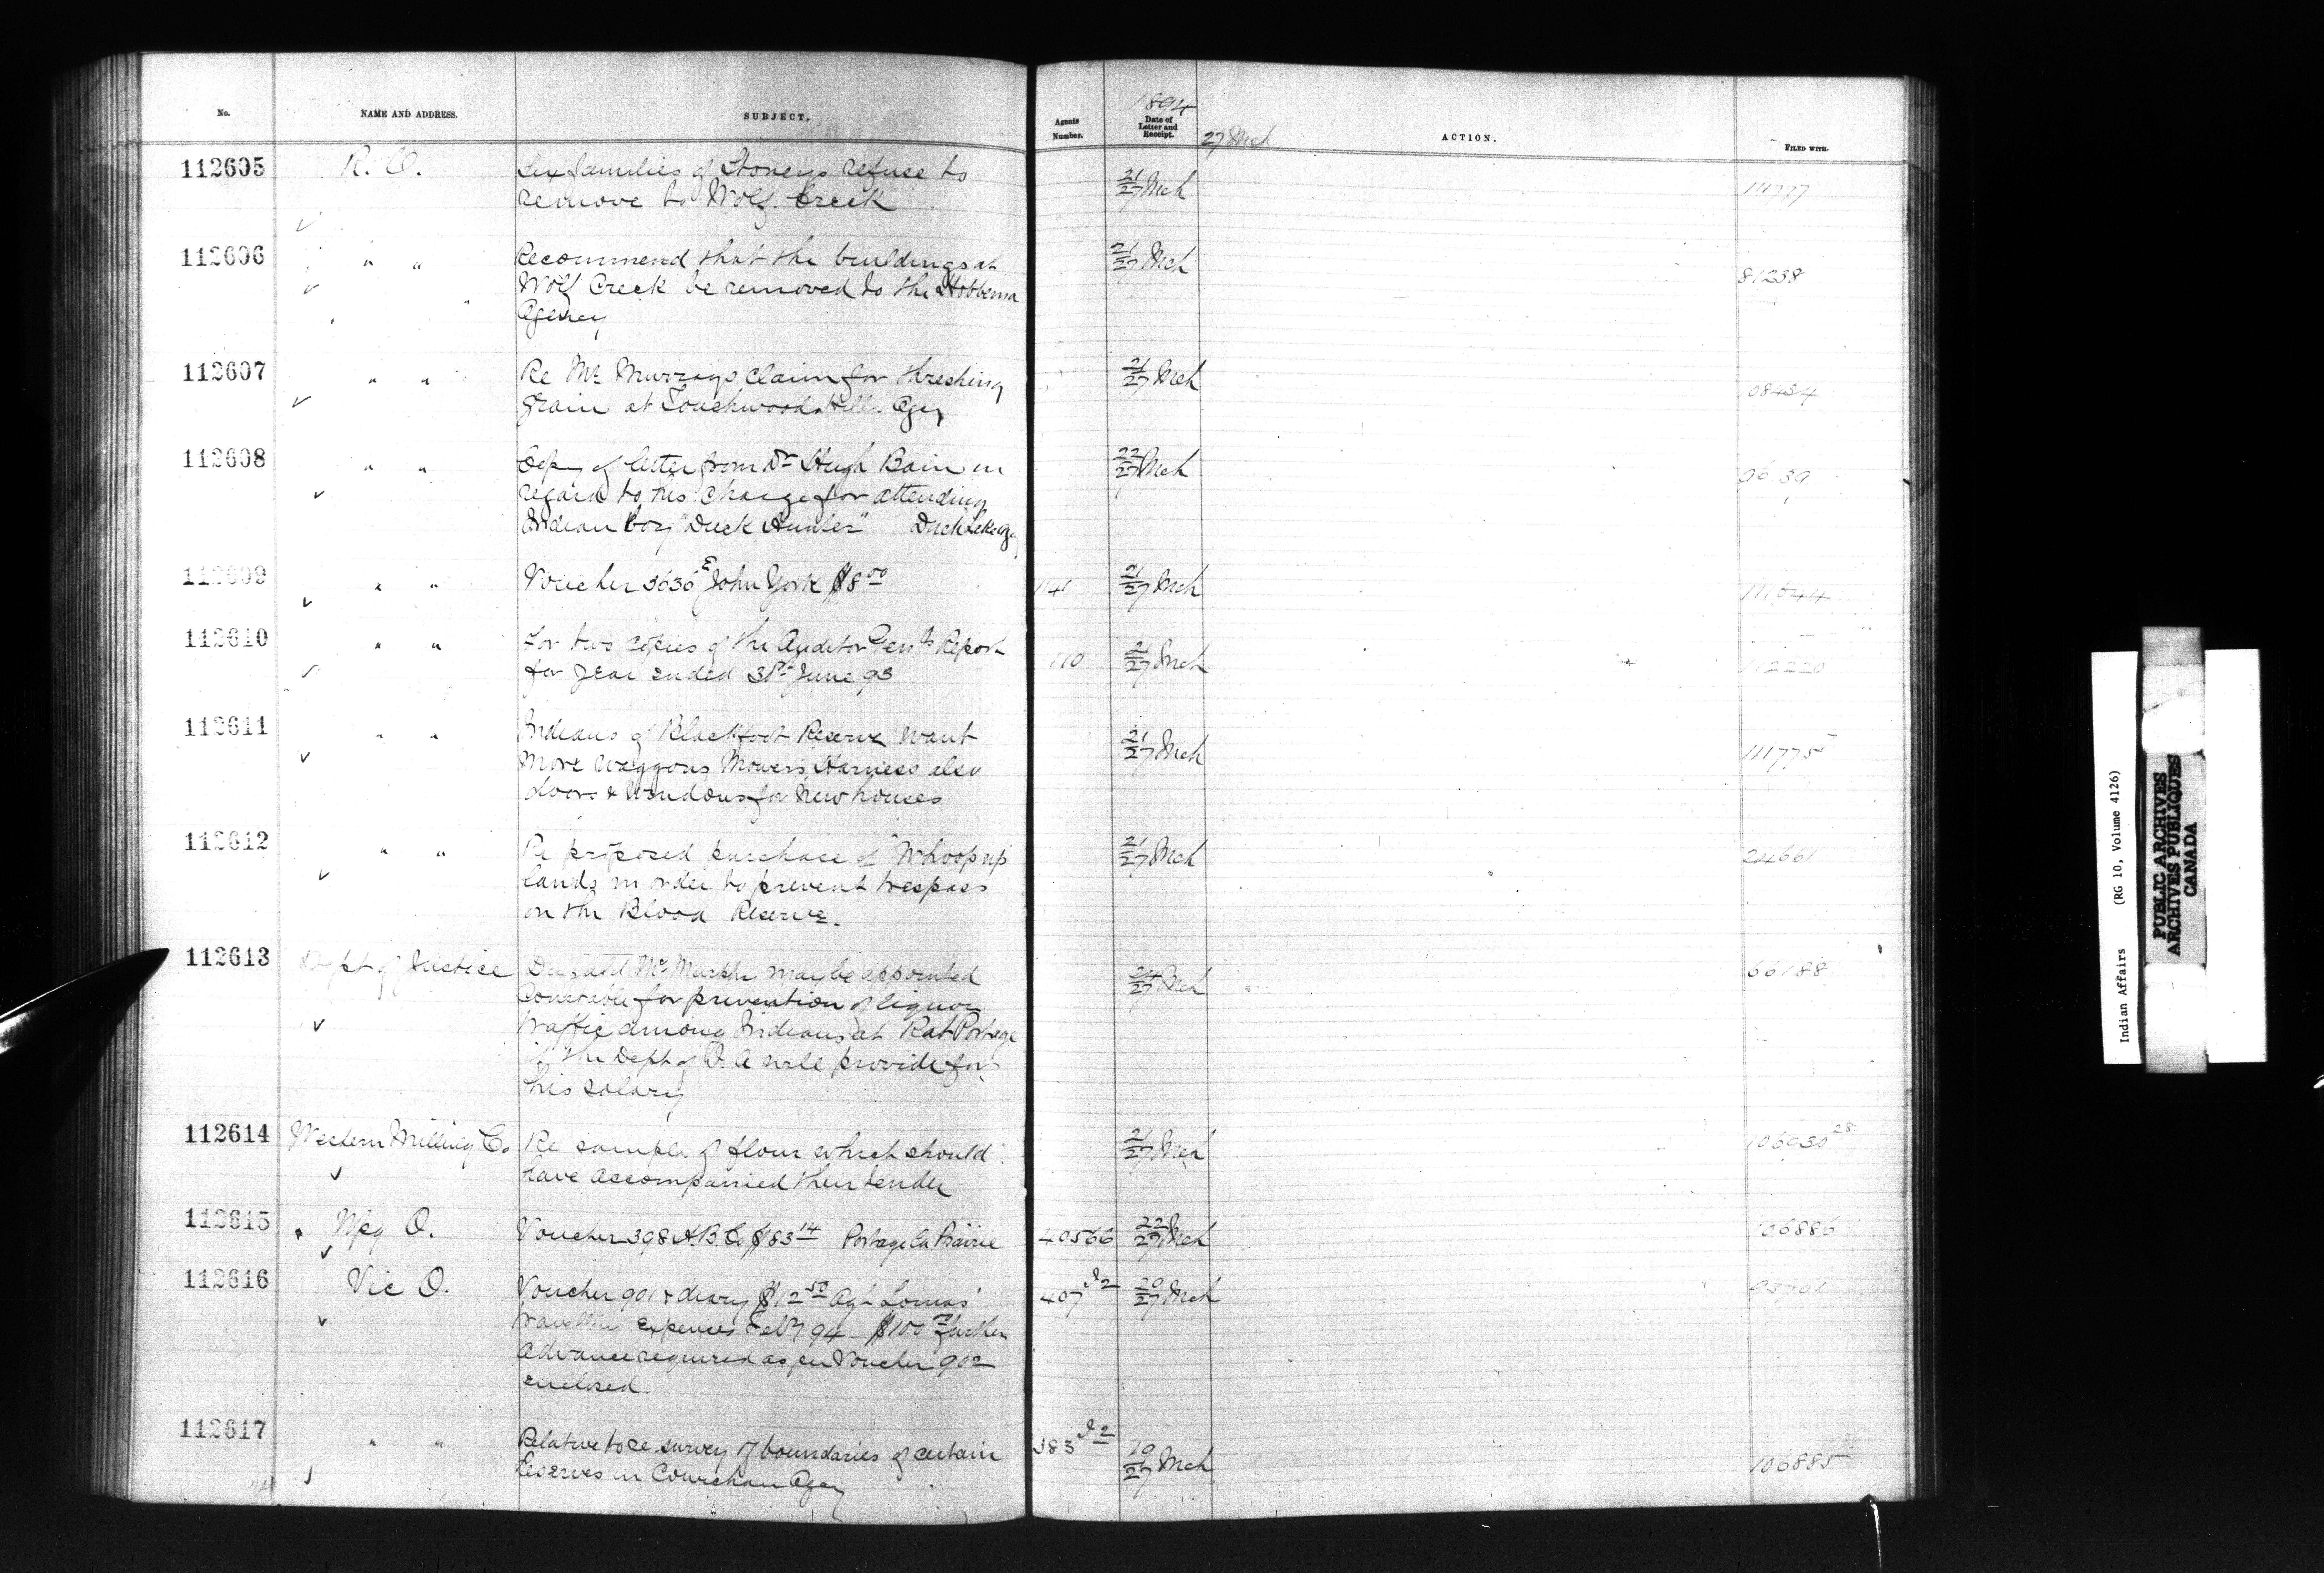 No. NAME AND ADDRESS. SUBJECT. Agents Number. 1894 Date of Letter and Receipt. 27 Mch ACTION. FILED WITH.
112605 R. O. Six families of Stoneys refuse to 21/27 Mch 111777
remove to Wolf Creek
112606 " " Recommend that the buildings at 21/27 Mch 81238
Wolf Creek be removed to the Hobbema
Agency
112607 " " Re Mr Murrays claim for threshing 21/27 Mch 08434
grain at Touchwood Hills Agcy
112608 " " Copy of letter from Dr Hugh Bain in 22/27 Mch
regard to his charge for attending
Indian boy "Duck Hunter" Duck Lake Agy
112609 " " Voucher 3636 E John York $8 00 21/27 Mch
112610 " " For two copies of the Auditor Genls Report 110 21/27 Mch 112220
for year ended 30th June 93
112611 " " Indians of Blackfoot Reserve want 21/27 Mch 111775
more waggons, Mowers, Harness also
doors & windows for new houses
112612 " " Re proposed purchase of "Whoop up" 21/27 Mch 24661
lands in order to prevent trespass
on the Blood Reserve.
112613 Dept of Justice Dugald McMurphy may be appointed 24/27 Mch 66188
Constable for prevention of liquor
traffic among Indians at Rat Portage
if the Dept of I. A will provide for
his salary
112614 Western Milling Co Re sample of flour which should 21/27 Mch 106930 28
have accompanied their tender
112615 Wpg O. Voucher 398 H.B.Co $83 14 Portage la Prairie 40566 22/27 Mch 106886
112616 Vic O. Voucher 901 & diary $12 50 Agt Lomas' 407 I2 20/27 Mch 93701
travelling expenses Feby 94 - $100 00 further
advance required as per Voucher 902
enclosed.
112617 " " Relative to re-survey of boundaries of certain 383 I2 19/27 Mch 106885
Reserves in Cowichan Agcy
Indian Affairs (RG 10, Volume 4126)
PUBLIC ARCHIVES
ARCHIVES PUBLIQUES
CANADA